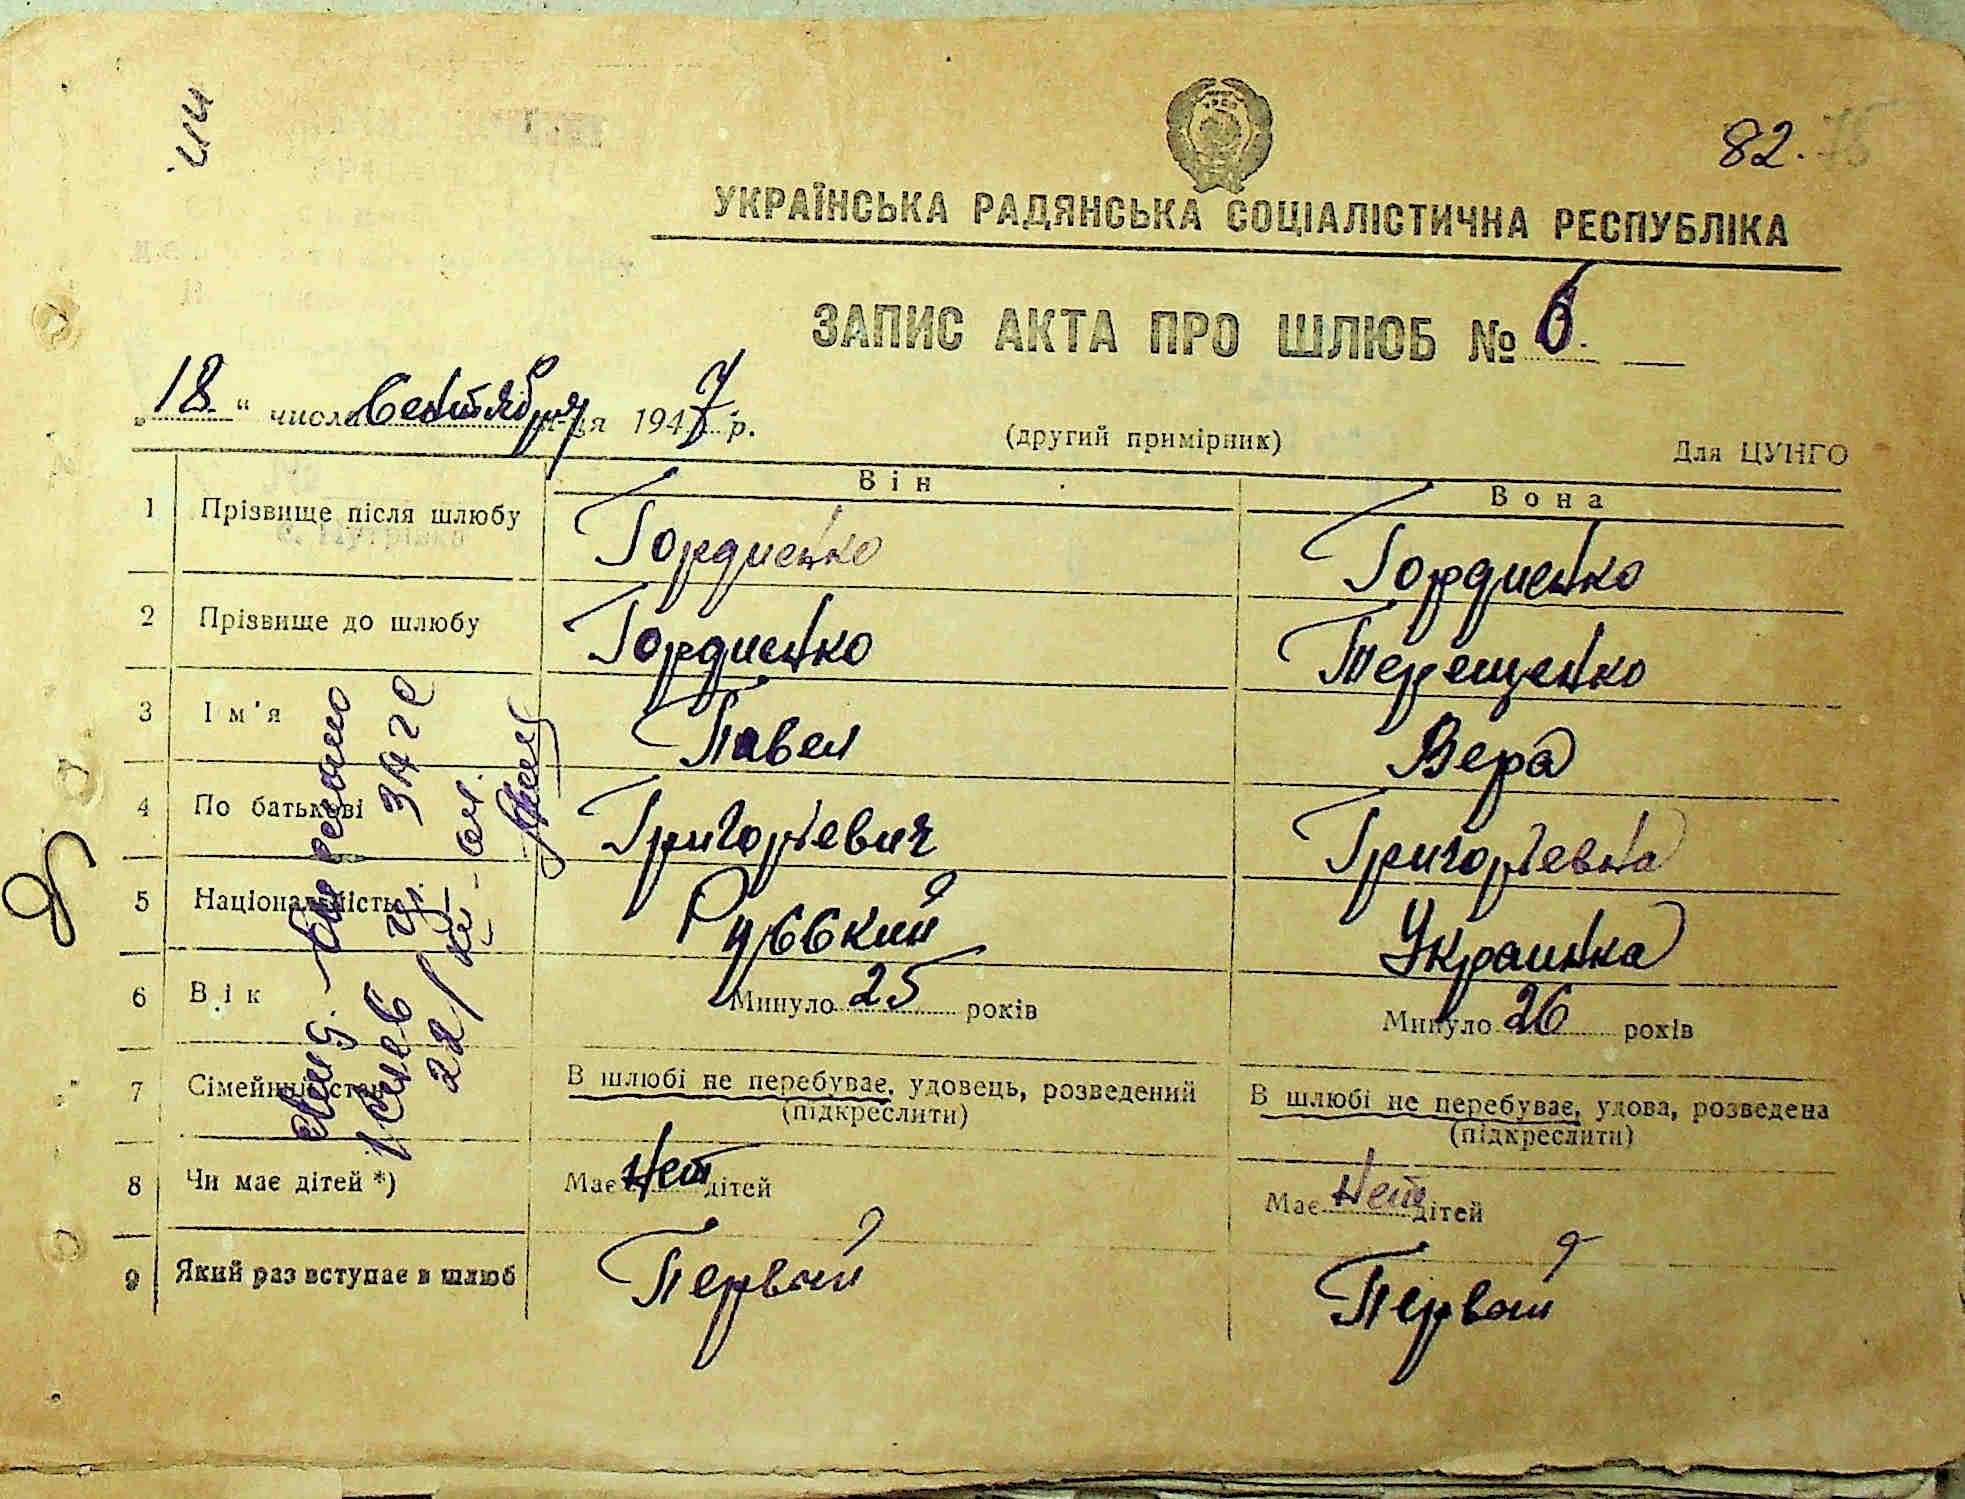 82. 75
УКРАЇНСЬКА РАДЯНСЬКА СОЦІАЛІСТИЧНА РЕСПУБЛІКА
ЗАПИС АКТА ПРО ШЛЮБ № 6.
„18“ числа Сентября м-ця 1947 р.
(другий примірник)
Для ЦУНГО
Він Вона
1 Прізвище після шлюбу Гордиенко Гордиенко
2 Прізвище до шлюбу Гордиенко Терещенко
3 Ім'я Павел Вера
4 По батькові Григорьевич Григорьевна
5 Національність Русский Украинка
6 Вік Минуло 25 років Минуло 26 років
7 Сімейний стан В шлюбі не перебуває, удовець, розведений В шлюбі не перебуває, удова, розведена
(підкреслити) (підкреслити)
8 Чи має дітей *) Має нет дітей Має нет дітей
9 Який раз вступає в шлюб Первый Первый
ЗАГС